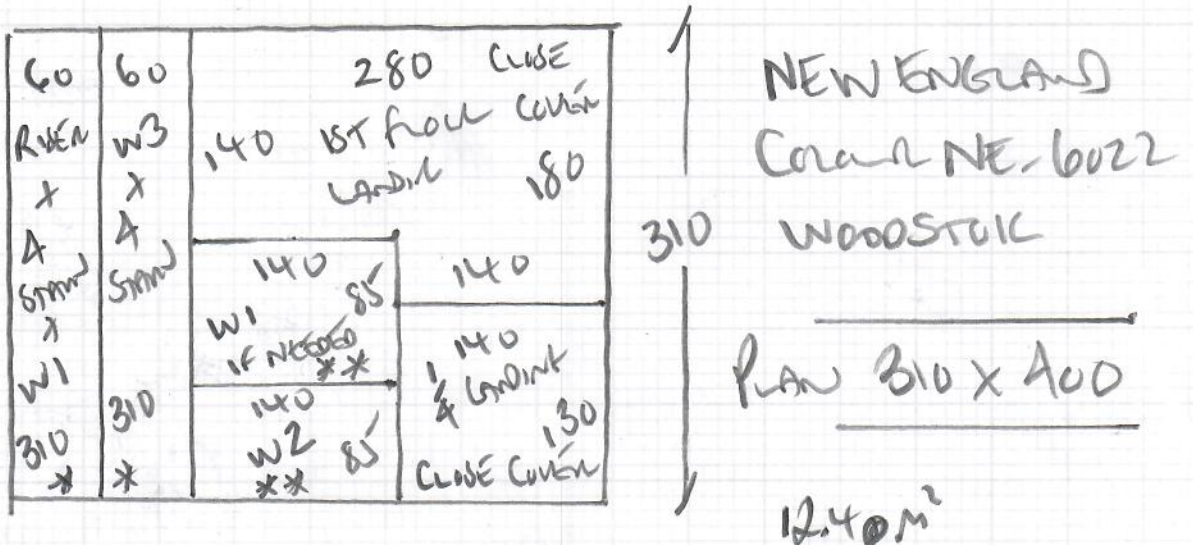 60
RISER
X
4
STAND
X
W1
310
*
60
W3
X
4
STAND
310
*
280 CLOSE
140 1ST FLOOR COVER
LANDING 180
140
140
W1 85
IF NEEDED
**
140
W2 85
**
140
1/4 LANDING
130
CLOSE COVER
310
NEW ENGLAND
COLOUR NE-6022
WOODSTOCK
PLAN 310 X 400
12.40 M²